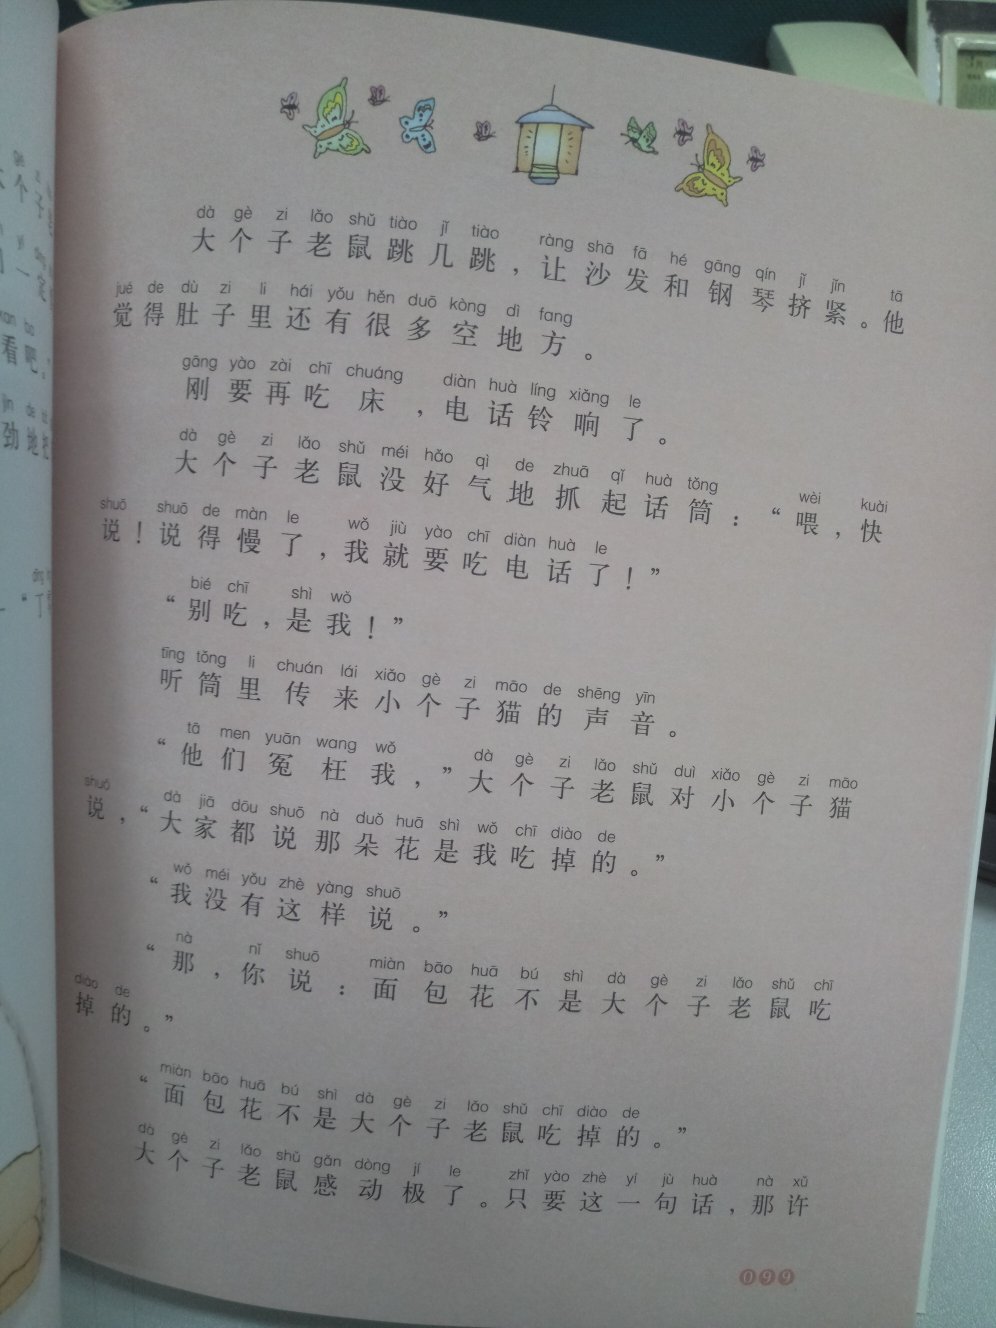 dà gè zi lǎo shǔ tiào jǐ tiào ràng shā fā hé gāng qín jǐ jǐn tā
大个子老鼠跳几跳，让沙发和钢琴挤紧。他
jué de dù zi li hái yǒu hěn duō kòng dì fang
觉得肚子里还有很多空地方。
gāng yào zài chī chuáng diàn huà líng xiǎng le
刚要再吃床，电话铃响了。
dà gè zi lǎo shǔ méi hǎo qì de zhuā qǐ huà tǒng wèi kuài
大个子老鼠没好气地抓起话筒：“喂，快
shuō shuō de màn le wǒ jiù yào chī diàn huà le
说！说得慢了，我就要吃电话了！”
bié chī shì wǒ
“别吃，是我！”
tīng tǒng li chuán lái xiǎo gè zi māo de shēng yīn
听筒里传来小个子猫的声音。
tā men yuān wang wǒ dà gè zi lǎo shǔ duì xiǎo gè zi māo
“他们冤枉我，”大个子老鼠对小个子猫
shuō dà jiā dōu shuō nà duǒ huā shì wǒ chī diào de
说，“大家都说那朵花是我吃掉的。”
wǒ méi yǒu zhè yàng shuō
“我没有这样说。”
nà nǐ shuō miàn bāo huā bú shì dà gè zi lǎo shǔ chī
“那，你说：面包花不是大个子老鼠吃
diào de
掉的。”
miàn bāo huā bú shì dà gè zi lǎo shǔ chī diào de
“面包花不是大个子老鼠吃掉的。”
dà gè zi lǎo shǔ gǎn dòng jí le zhǐ yào zhè yí jù huà nà xǔ
大个子老鼠感动极了。只要这一句话，那许
099